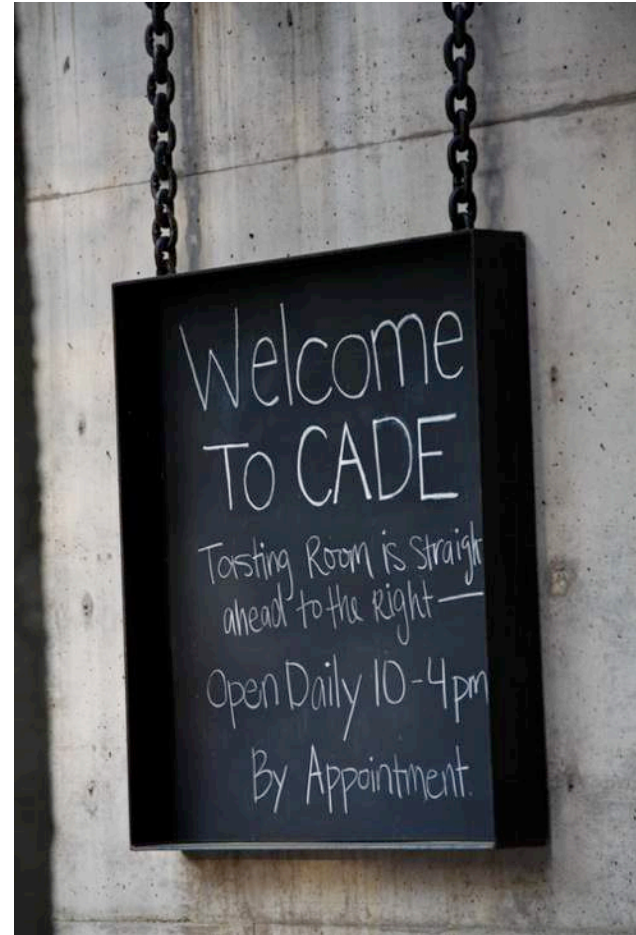 Welcome
To CADE
Tasting Room is Straigh
ahead to the Right —
Open Daily 10-4pm
By Appointment.